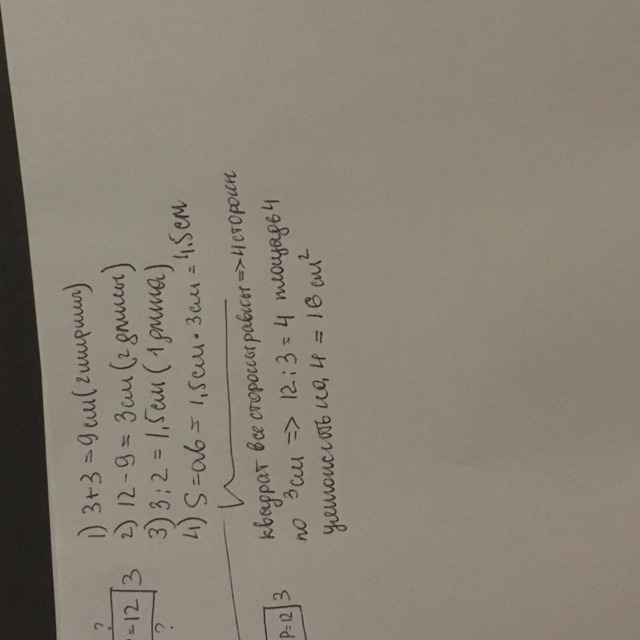 ?
=12 3
?
1) 3+3=9см(2ширины)
2) 12-9=3см(2длины)
3) 3:2=1,5см(1длина)
4) S=ab=1,5см·3см=4,5см
P=12 3
квадрат все стороны равны=>4сторон
по 3см => 12:3=4 площадь4
умножить на 4 = 16см²